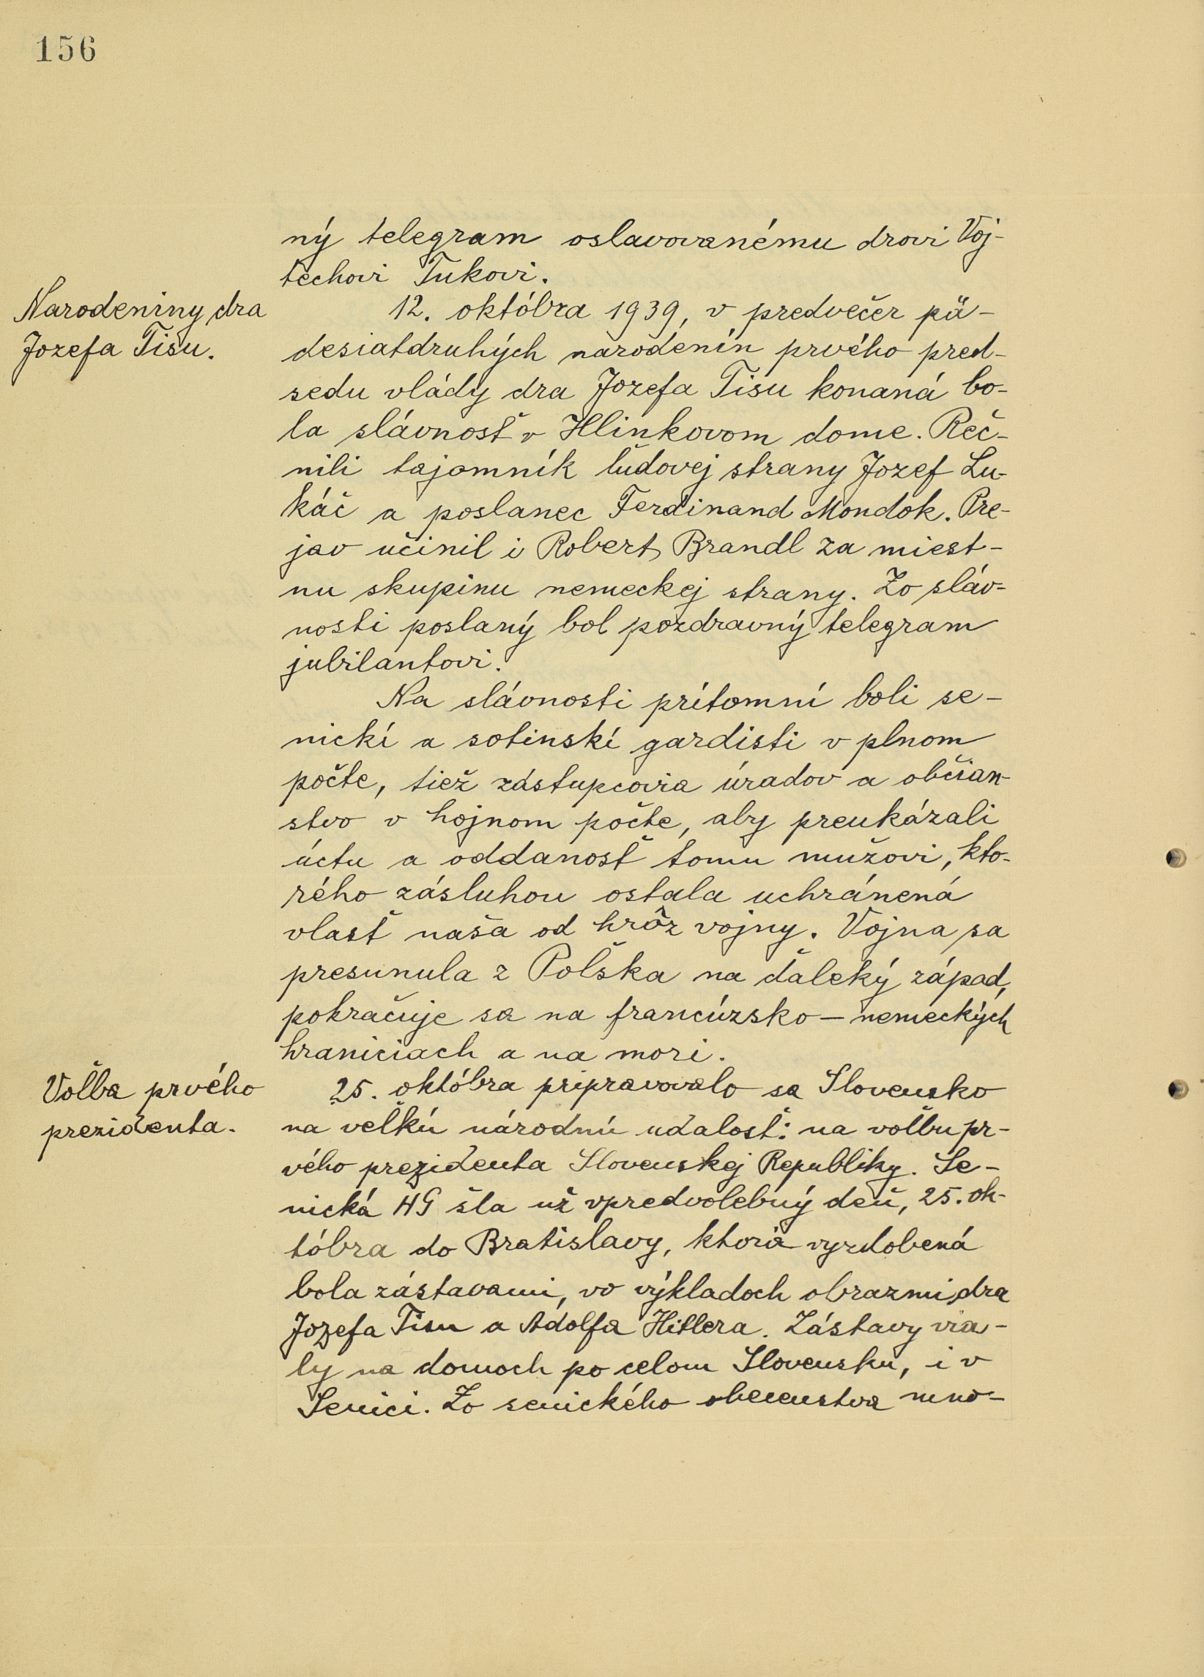 156
ný telegram oslavovanému drovi Voj-
techovi Tukovi.
Narodeniny dra
Jozefa Tisu.
12. októbra 1939, v predvečer pä-
desiatdruhých narodenín prvého pred-
sedu vlády dra Jozefa Tisu konaná bo-
la slávnosť v Hlinkovom dome. Reč-
nili tajomník ľudovej strany Jozef Lu-
káč a poslanec Ferdinand Mondok. Pre-
jav učinil i Robert Brandl za miest-
nu skupinu nemeckej strany. Zo sláv-
nosti poslaný bol pozdravný telegram
jubilantovi.
Na slávnosti prítomní boli se-
nickí a sotinskí gardisti v plnom
počte, tiež zástupcovia úradov a občian-
stvo v hojnom počte, aby preukázali
úctu a oddanosť tomu mužovi, kto-
rého zásluhou ostala uchránená
vlasť naša od hrôz vojny. Vojna sa
presunula z Poľska na ďaleký západ,
pokračuje sa na francúzsko-nemeckých
hraniciach a na mori.
Voľba prvého
prezidenta.
25. októbra pripravovalo sa Slovensko
na veľkú národnú udalosť: na voľbu pr-
vého prezidenta Slovenskej Republiky. Se-
nická HG šla už vpredvolebný deň, 25. ok-
tóbra do Bratislavy, ktorá vyzdobená
bola zástavami, vo výkladoch obrazmi dra
Jozefa Tisu a Adolfa Hitlera. Zástavy via-
ly na domoch po celom Slovensku, i v
Senici. Zo senického obecenstva mno-